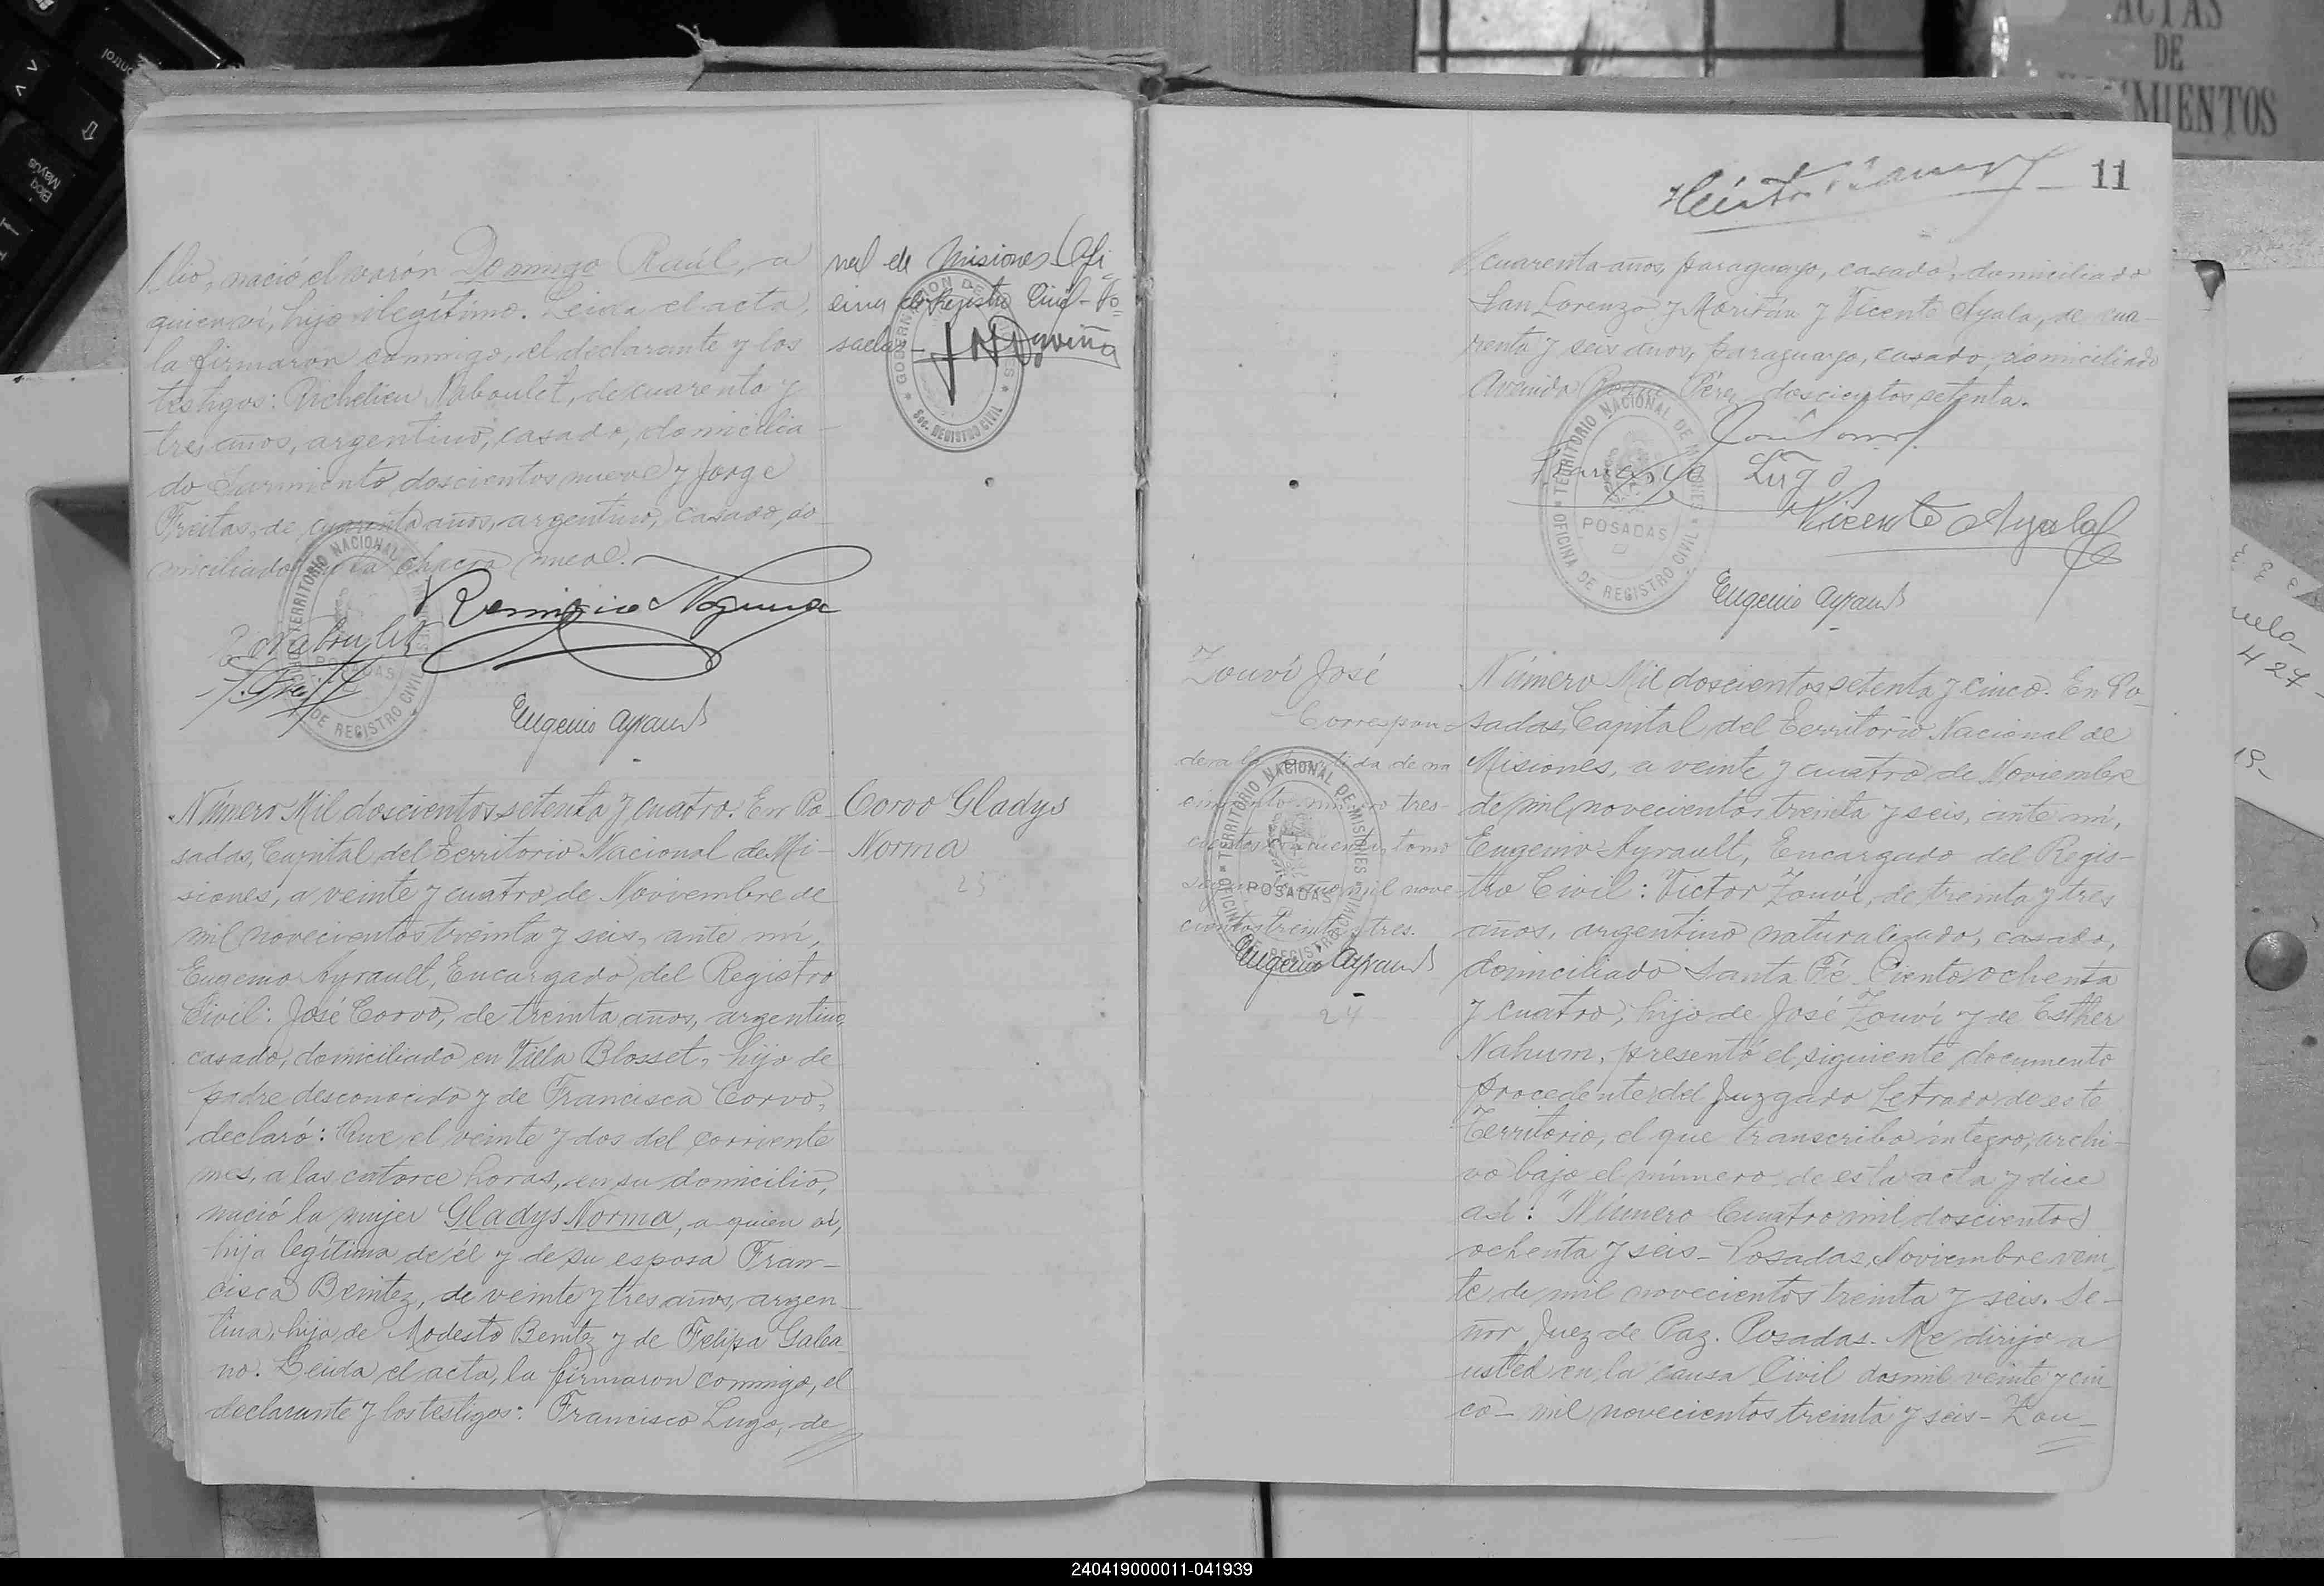 lio, nació el varón Domingo Raúl, a
quien ví, hijo ilegítimo. Leida el acta,
la firmaron conmigo, el declarante y los
testigos: Richelieu Naboulet, de cuarenta y
tres años, argentino, casado, domicilia-
do Sarmiento doscientos nueve y Jorge
Freitas, de cuarenta años, argentino, casado, do-
miciliado en la chacra nueve.
Remigio Noguera
R Naboulet
J. Freitas
TERRITORIO NACIONAL DE MISIONES
POSADAS
OFICINA DE REGISTRO CIVIL
Eugenio Ayrault
nal de Misiones Ofi-
cina de Registro Civil - Po-
sadas -
GOBERNACION DE MISIONES
SEC. REGISTRO CIVIL
Corvo Gladys
Norma
23
Número Mil doscientos setenta y cuatro. En Po-
sadas, Capital del Territorio Nacional de Mi-
siones, a veinte y cuatro de Noviembre de
mil novecientos treinta y seis, ante mí,
Eugenio Ayrault, Encargado del Registro
Civil: José Corvo, de treinta años, argentino,
casado, domiciliado en Villa Blosset, hijo de
padre desconocido y de Francisca Corvo,
declaró: Que el veinte y dos del corriente
mes, a las catorce horas, en su domicilio,
nació la mujer Gladys Norma, a quien ví,
hija legítima de él y de su esposa Fran-
cisca Benitez, de veinte y tres años, argen-
tina, hija de Modesto Benitez y de Felipa Galea
no. Leida el acta, la firmaron conmigo, el
declarante y los testigos: Francisco Lugo, de
11
cuarenta años, paraguayo, casado, domiciliado
San Lorenzo y Moritán y Vicente Ayala, de cua-
renta y seis años, paraguayo, casado, domiciliado
Avenida Roque Pérez doscientos setenta.
Francisco Lugo
Vicente Ayala
TERRITORIO NACIONAL DE MISIONES
POSADAS
OFICINA DE REGISTRO CIVIL
Eugenio Ayrault
Zouví José
Correspon-
de a la partida de na
cimiento número tres-
cientos cincuenta, tomo
segundo, año mil nove
cientos treinta y tres.
Eugenio Ayrault
TERRITORIO NACIONAL DE MISIONES
POSADAS
OFICINA DE REGISTRO CIVIL
24
Número Mil doscientos setenta y cinco. En Po-
sadas, Capital del Territorio Nacional de
Misiones, a veinte y cuatro de Noviembre
de mil novecientos treinta y seis, ante mí,
Eugenio Ayrault, Encargado del Regis-
tro Civil: Victor Zouví, de treinta y tres
años, argentino naturalizado, casado,
domiciliado Santa Fé Ciento ochenta
y cuatro, hijo de José Zouví y de Esther
Nahum, presentó el siguiente documento
procedente del Juzgado Letrado de este
Territorio, el que transcribo íntegro, archi-
vo bajo el número de esta acta y dice
así: "Número Cuatro mil doscientos
ochenta y seis - Posadas, Noviembre vein
te de mil novecientos treinta y seis. Se-
ñor Juez de Paz. Posadas. Me dirijo a
usted en la causa Civil dos mil veinte y cin
co - mil novecientos treinta y seis - Zou-
ACTAS
DE
Control
Bloq
Mayús
424
240419000011-041939